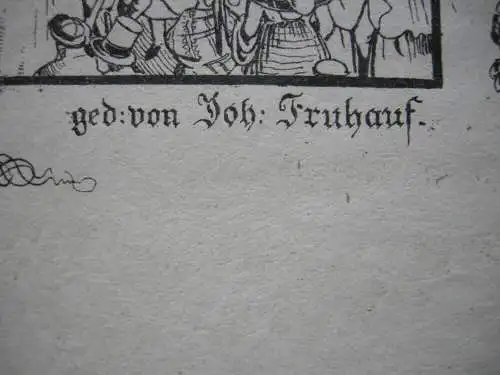 ged: von Joh: Fruhauf.